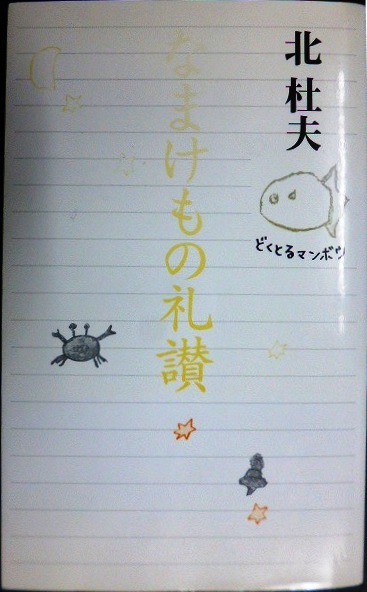 北 杜夫
どくとるマンボウ
なまけもの礼讃